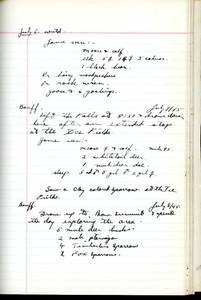 July 6. contd.
Game seen:-
moose & calf.
elk 5 & 5 calves.
1 black bear.
Or hairy woodpecker
or rock wren.
goose & 6 goslings.
Banff. July 7/45
left the Falls at 8:30 & drove down
here after an extended stop
at the Ice Fields
Game seen:-
moose & calf.
2 whitetail deer
1 mule deer doe.
sheep
Saw a Clay colored Sparrow at the Ice
Fields.
Banff. July 8/45.
Drove up to Bow Summit & spent
the day exploring the area.
5 mule deer bucks.
2 ptarmigan
4 Timberline Sparrow
2 Fox Sparrows.